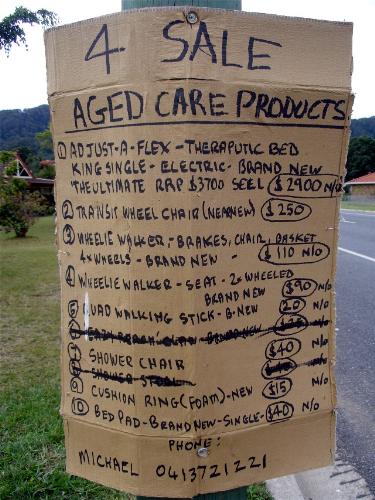 4 SALE
AGED CARE PRODUCTS
① ADJUST-A-FLEX - THERAPUTIC BED
KING SINGLE - ELECTRIC - BRAND NEW
THE ULTIMATE RRP $3700 SELL $2900 N/O
② TRANSIT WHEEL CHAIR (NEARNEW) $250
③ WHEELIE WALKER - BRAKES, CHAIR, BASKET
4x WHEELS - BRAND NEW - $110 N/O
④ WHEELIE WALKER - SEAT - 2x WHEELED
BRAND NEW $90 N/O
⑤ QUAD WALKING STICK - B.NEW 20 N/O
N/o
SHOWER CHAIR $40 N/o
SHOWER STOOL N/o
⑨ CUSHION RING (FOAM) - NEW $15 N/o
⑩ BED PAD - BRAND NEW - SINGLE - $40 N/o
PHONE:
MICHAEL 0413721221